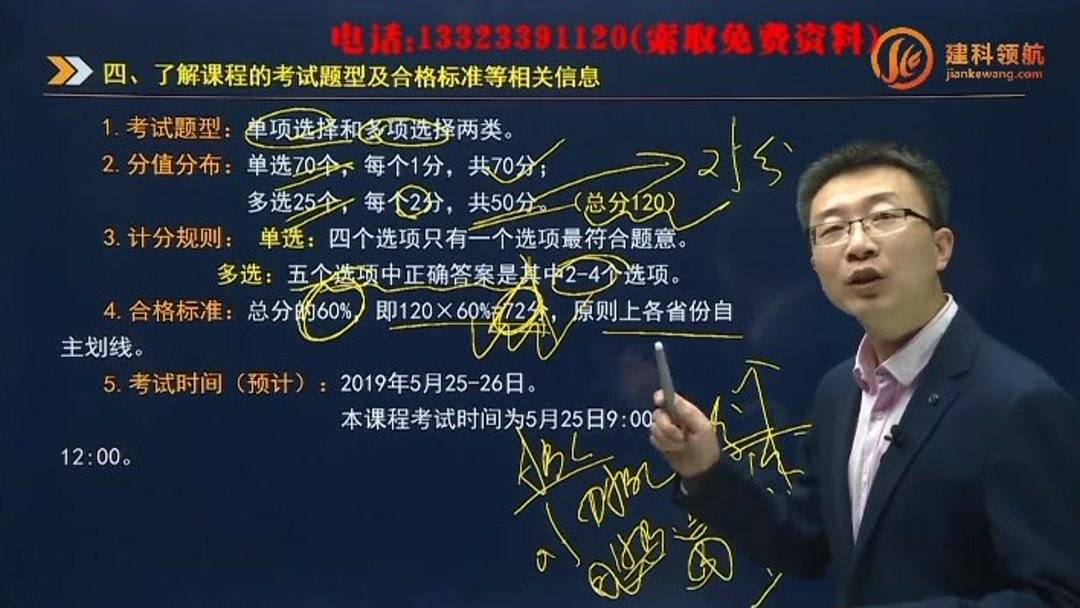 电话:13323391120(索取免费资料)
建科领航
jiankewang.com
四、了解课程的考试题型及合格标准等相关信息
1.考试题型：单项选择和多项选择两类。
2.分值分布：单选70个，每个1分，共70分；
多选25个，每个2分，共50分。（总分120）
3.计分规则： 单选：四个选项只有一个选项最符合题意。
多选：五个选项中正确答案是其中2-4个选项。
4.合格标准：总分的60%，即120×60%=72分，原则上各省份自
主划线。
5.考试时间（预计）：2019年5月25-26日。
本课程考试时间为5月25日9:00
12:00。